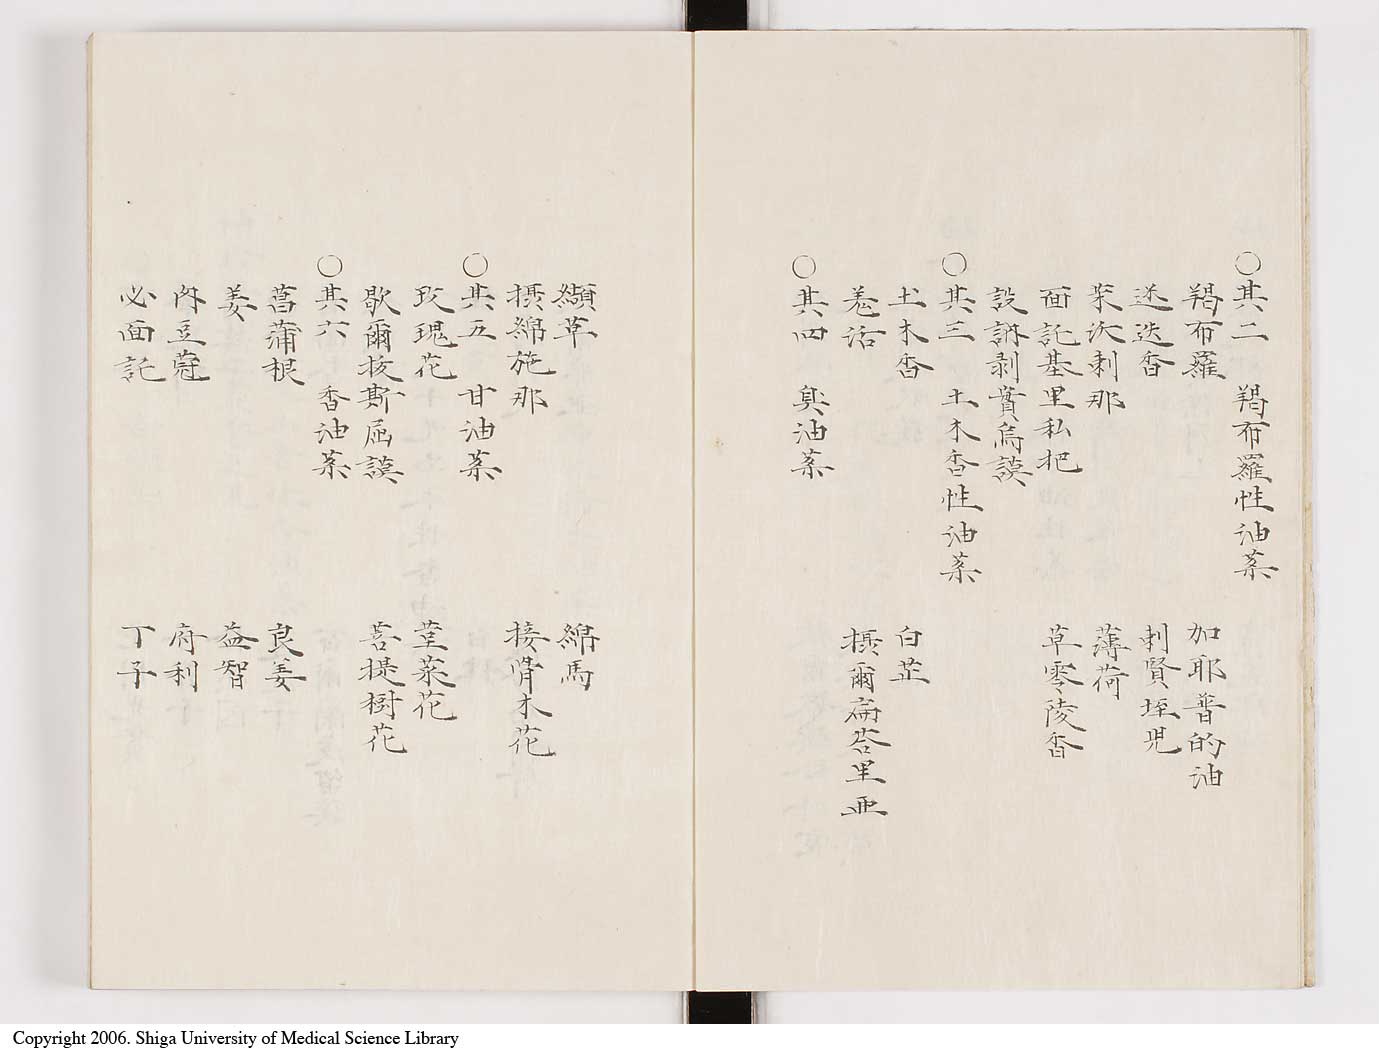 ○其二 羯布羅性油薬
羯布羅 加耶普的油
迷迭香 刺賢垤児
茉沃刺那 薄荷
面託基里私把 草零陵香
設訥剥質烏謨
○其三 土木香性油薬
土木香 白芷
羗活 摂爾扁答里亜
○其四 臭油薬
纈草 綿馬
摂綿施那 接骨木花
○其五 甘油薬
玫瑰花 菫菜花
歇爾拔斯屈謨 菩提樹花
○其六 香油薬
菖蒲根 良姜
姜 益智
肉豆蔲 府利
必面託 丁子
Copyright 2006. Shiga University of Medical Science Library